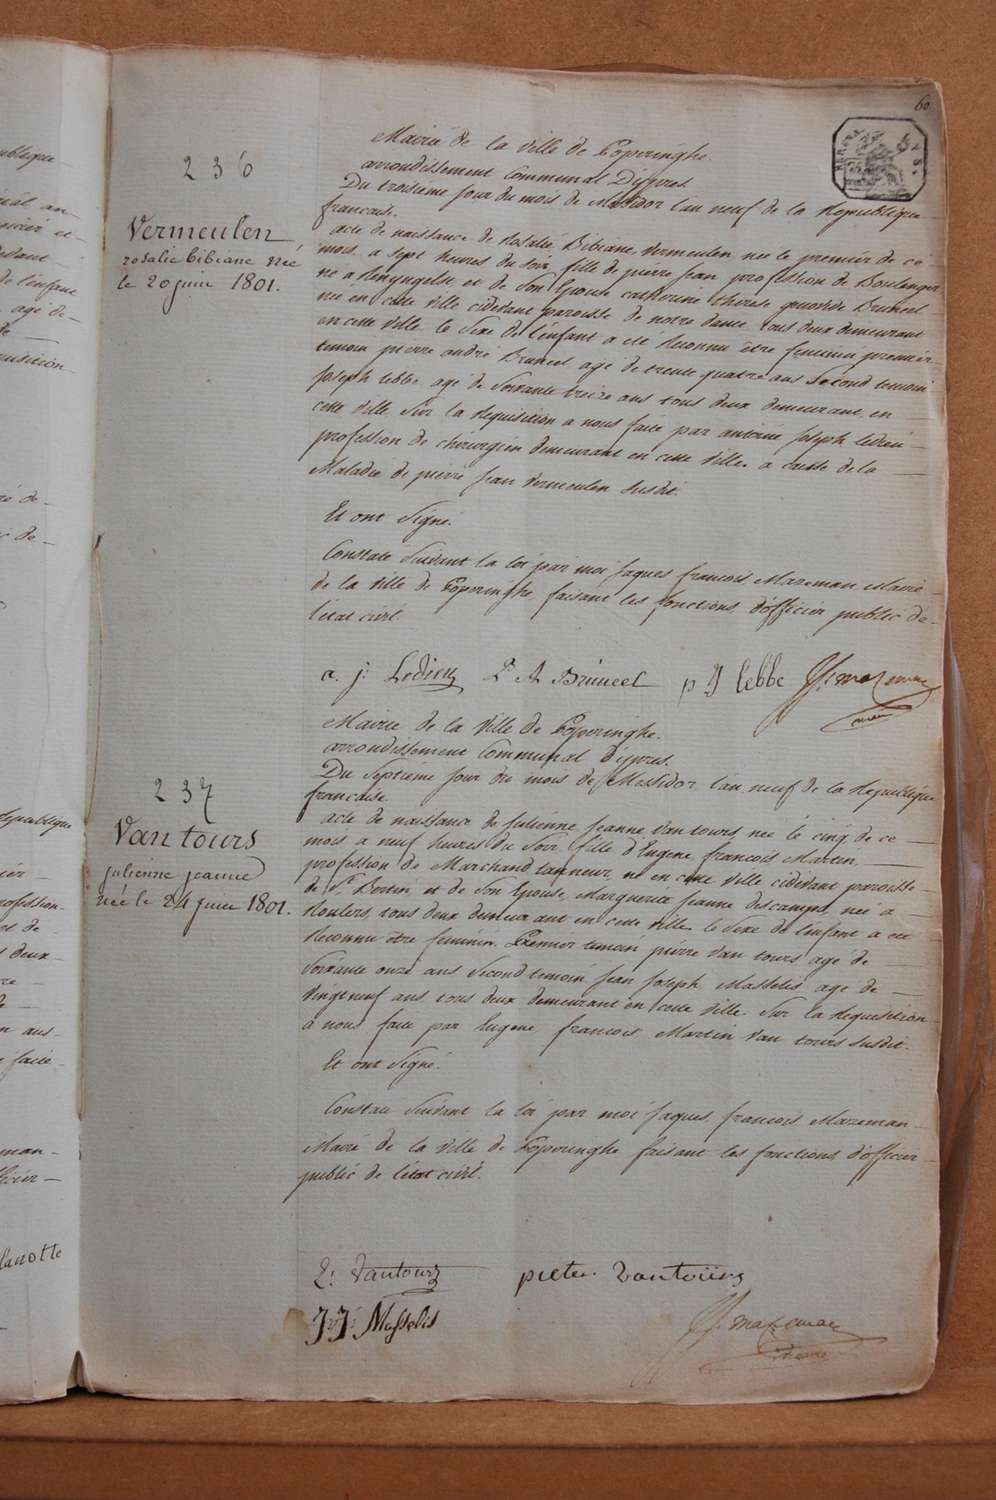 60
236
Vermeulen
rosalie bibiane née
le 20 juin 1801.
Mairie de la ville de Poperinghe
arrondissement Communal D'ypres
Du troisieme jour du mois de Messidor l'an neuf de la Republique
francaise.
acte de naissance de Rosalie Bibiane Vermeulen née le premier de ce
mois a sept heures du soir, fille de pierre jean profession de Boulanger
né a Renynghelst, et de son Epouse catherine therese Bruneel
née en cette ville cidevant paroisse de notre dame tous deux demeurant
en cette ville le sexe de l'enfant a eté Reconnu être feminin premier
temoin pierre andré Bruneel agé de trente quatre ans Second temoin
joseph lebbe agé de Soixante treize ans tous deux demeurant en
cette ville Sur la Requisition a nous faite par antoine joseph ledieu
profession de chirurgien demeurant en cette ville a cause de la
Maladie de pierre jean Vermeulen Susdit.
Et ont Signé.
Constaté Suivant la loi par moi jaques francois Mazeman Maire
de la ville de Poperinghe faisant les fonctions d'officier public de
l'état civil.
a. j. Ledieu P A Bruneel p J lebbe J f. mazeman
maire
237
Van tours
julienne jeanne
née le 24 juin 1801.
Mairie de la ville de Poperinghe.
arrondissement Communal d'ypres.
Du Septieme jour du mois de Messidor l'an neuf de la Republique
francaise.
acte de naissance de julienne jeanne Van tours née le cinq de ce
mois a neuf heures du Soir, fille d'Eugene francois Martin
profession de Marchand tanneur, né en cette ville cidevant paroisse
de St Bertin et de Son Epouse Marguerite jeanne descamps née a
Roulers, tous deux demeurant en cette ville le Sexe de l'enfant a eté
Reconnu être feminin. Premier temoin pierre Van tours agé de
Soixante onze ans Second temoin jean joseph Masselis agé de
vingtneuf ans tous deux demeurant en cette ville. Sur la Requisition
à nous faite par Eugene francois Martin Van tours Susdit.
Et ont Signé.
Constaté Suivant la loi par moi jaques francois Mazeman
Maire de la ville de Poperinghe faisant les fonctions d'officier
public de l'état civil.
E: Vantours pieter Vantoürs
J: J: Masselis J f. mazeman
maire